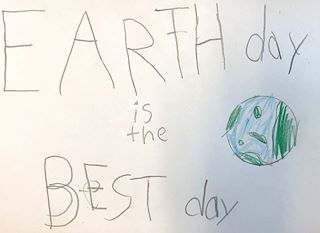 EARTH day
is
the
BEST day